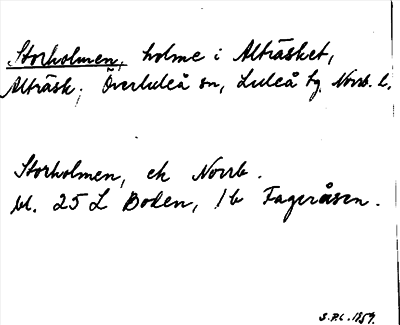 Storholmen, holme i Alträsket,
Alträsk, Överluleå sn, Luleå tg. Norrb. l.
Storholmen, ek Norrb.
bl. 25 L Boden, 1b Fageråsen.